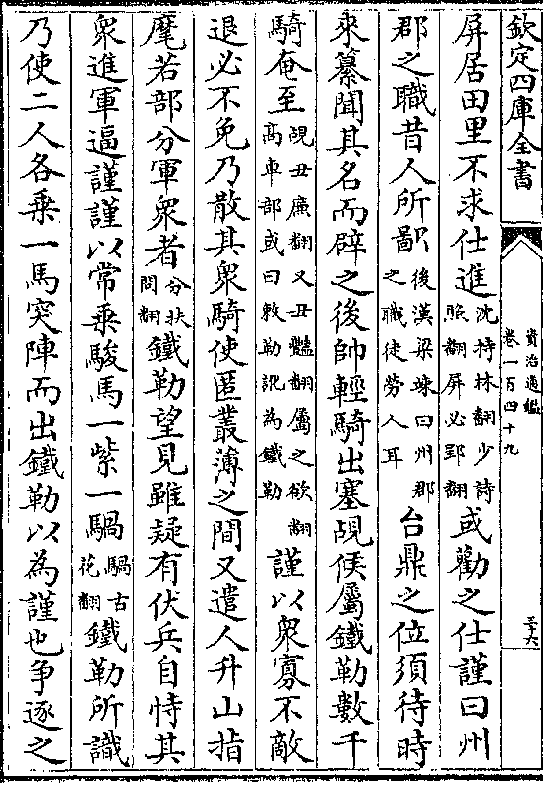 欽定四庫全書
資治通鑑
卷一百四十九
三十六
屏居田里不求仕進沈持林翻少詩照翻屏必郢翻或勸之仕謹曰州
郡之職昔人所鄙後漢梁竦曰州郡之職徒勞人耳台鼎之位須待時
來纂聞其名而辟之後帥輕騎出塞覘候屬鐵勒數千
騎奄至覘丑廉翻又丑豔翻屬之欲翻高車部或曰敕勒訛為鐵勒謹以衆寡不敵
退必不免乃散其衆騎使匿叢薄之間又遣人升山指
麾若部分軍衆者分扶問翻鐵勒望見雖疑有伏兵自恃其
衆進軍逼謹謹以常乗駿馬一紫一騧騧古花翻鐵勒所識
乃使二人各乗一馬突陣而出鐵勒以為謹也争逐之